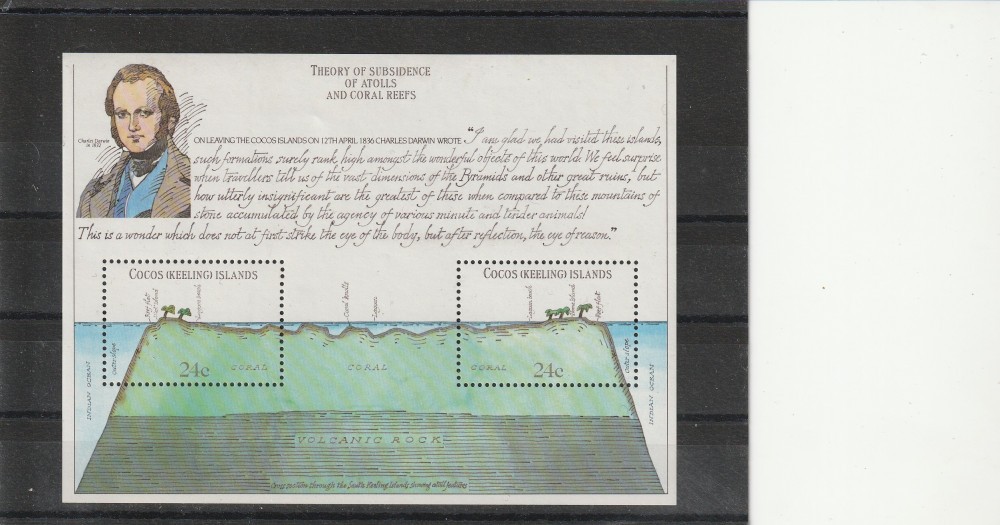 THEORY OF SUBSIDENCE
OF ATOLLS
AND CORAL REEFS
Charles Darwin
in 1840
ON LEAVING THE COCOS ISLANDS ON 12TH APRIL 1836 CHARLES DARWIN WROTE "I am glad we had visited these islands,
such formations surely rank high amongst the wonderful objects of this world. We feel surprise
when travellers tell us of the vast dimensions of the Pyramids and other great ruins, but
how utterly insignificant are the greatest of these when compared to these mountains of
stone accumulated by the agency of various minute and tender animals!
This is a wonder which does not at first strike the eye of the body, but after reflection, the eye of reason."
COCOS (KEELING) ISLANDS
COCOS (KEELING) ISLANDS
Reef flat
Lagoon beach
Coral knolls
Lagoon
Lagoon beach
Reef flat
Outer slope
Outer slope
INDIAN OCEAN
INDIAN OCEAN
24c
CORAL
CORAL
CORAL
24c
VOLCANIC ROCK
Cross section through the South Keeling Islands showing atoll features